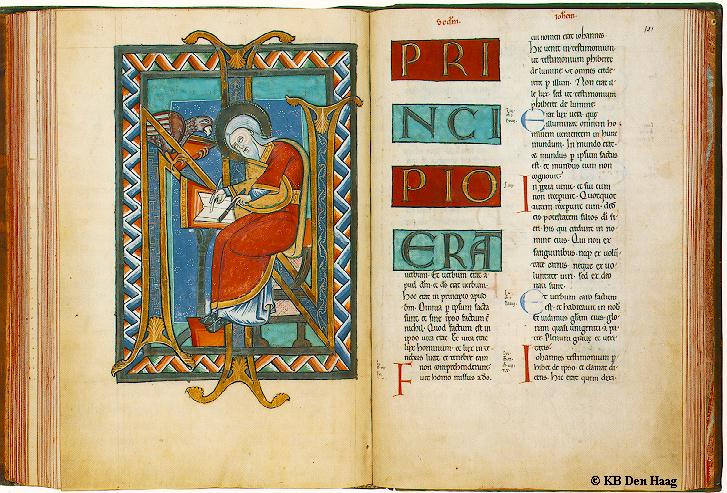 Scdm. iohem.
PRI
NCI
PIO
ERA
uerbum. Et uerbum erat a
pud dm. et ds erat uerbum.
Hoc erat in principio apud
dm. Omnia p ipsum facta
sunt. et sine ipso factum e
nichil. Quod factum est in
ipso uita erat. Et uita erat
lux hominum. et lux in te
nebris lucet. et tenebre eam
non comprehenderunt.
Fuit homo missus a do.
cui nomen erat iohannes.
Hic uenit in testimonium
ut testimonium phiberet
de lumine. ut omnes crede
rent p illum. Non erat il
le lux. sed ut testimonium
phiberet de lumine.
Erat lux uera. que
illuminat omnem ho
minem uenientem in hunc
mundum. In mundo erat.
et mundus p ipsum factus
est. et mundus eum non
cognouit.
In ppria uenit. et sui eum
non receperunt. Quotquot
autem receperunt eum. dedit
eis potestatem filios di fi
eri. his qui credunt in no
mine eius. Qui non ex
sanguinibus. neque ex uolun
tate carnis. neque ex uo
luntate uiri. sed ex deo
nati sunt.
Et uerbum caro factum
est. et habitauit in nob.
Et uidimus gliam eius. glo
riam quasi unigeniti a pa
tre. Plenum gratie et ueri
tatis.
Iohannes testimonium p
hibet de ipso. et clamat di
cens. Hic erat quem dixi.
© KB Den Haag